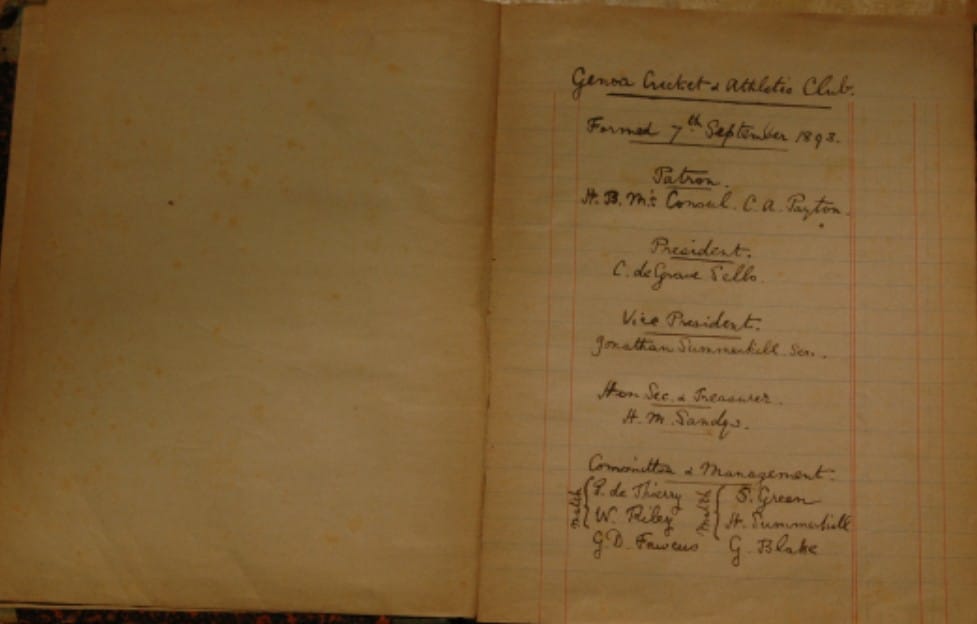 Genoa Cricket & Athletic Club.
Formed 7th September 1893.
Patron.
H. B. M's Consul. C. A. Payton.
President.
C. de Grave Sells.
Vice President.
Jonathan Summerhill Sen.
Hon Sec. & Treasurer.
H. M. Sandys.
Committee & Management.
match P. de Thierry match S. Green
W. Riley H. Summerhill
G. D. Fawcus G. Blake